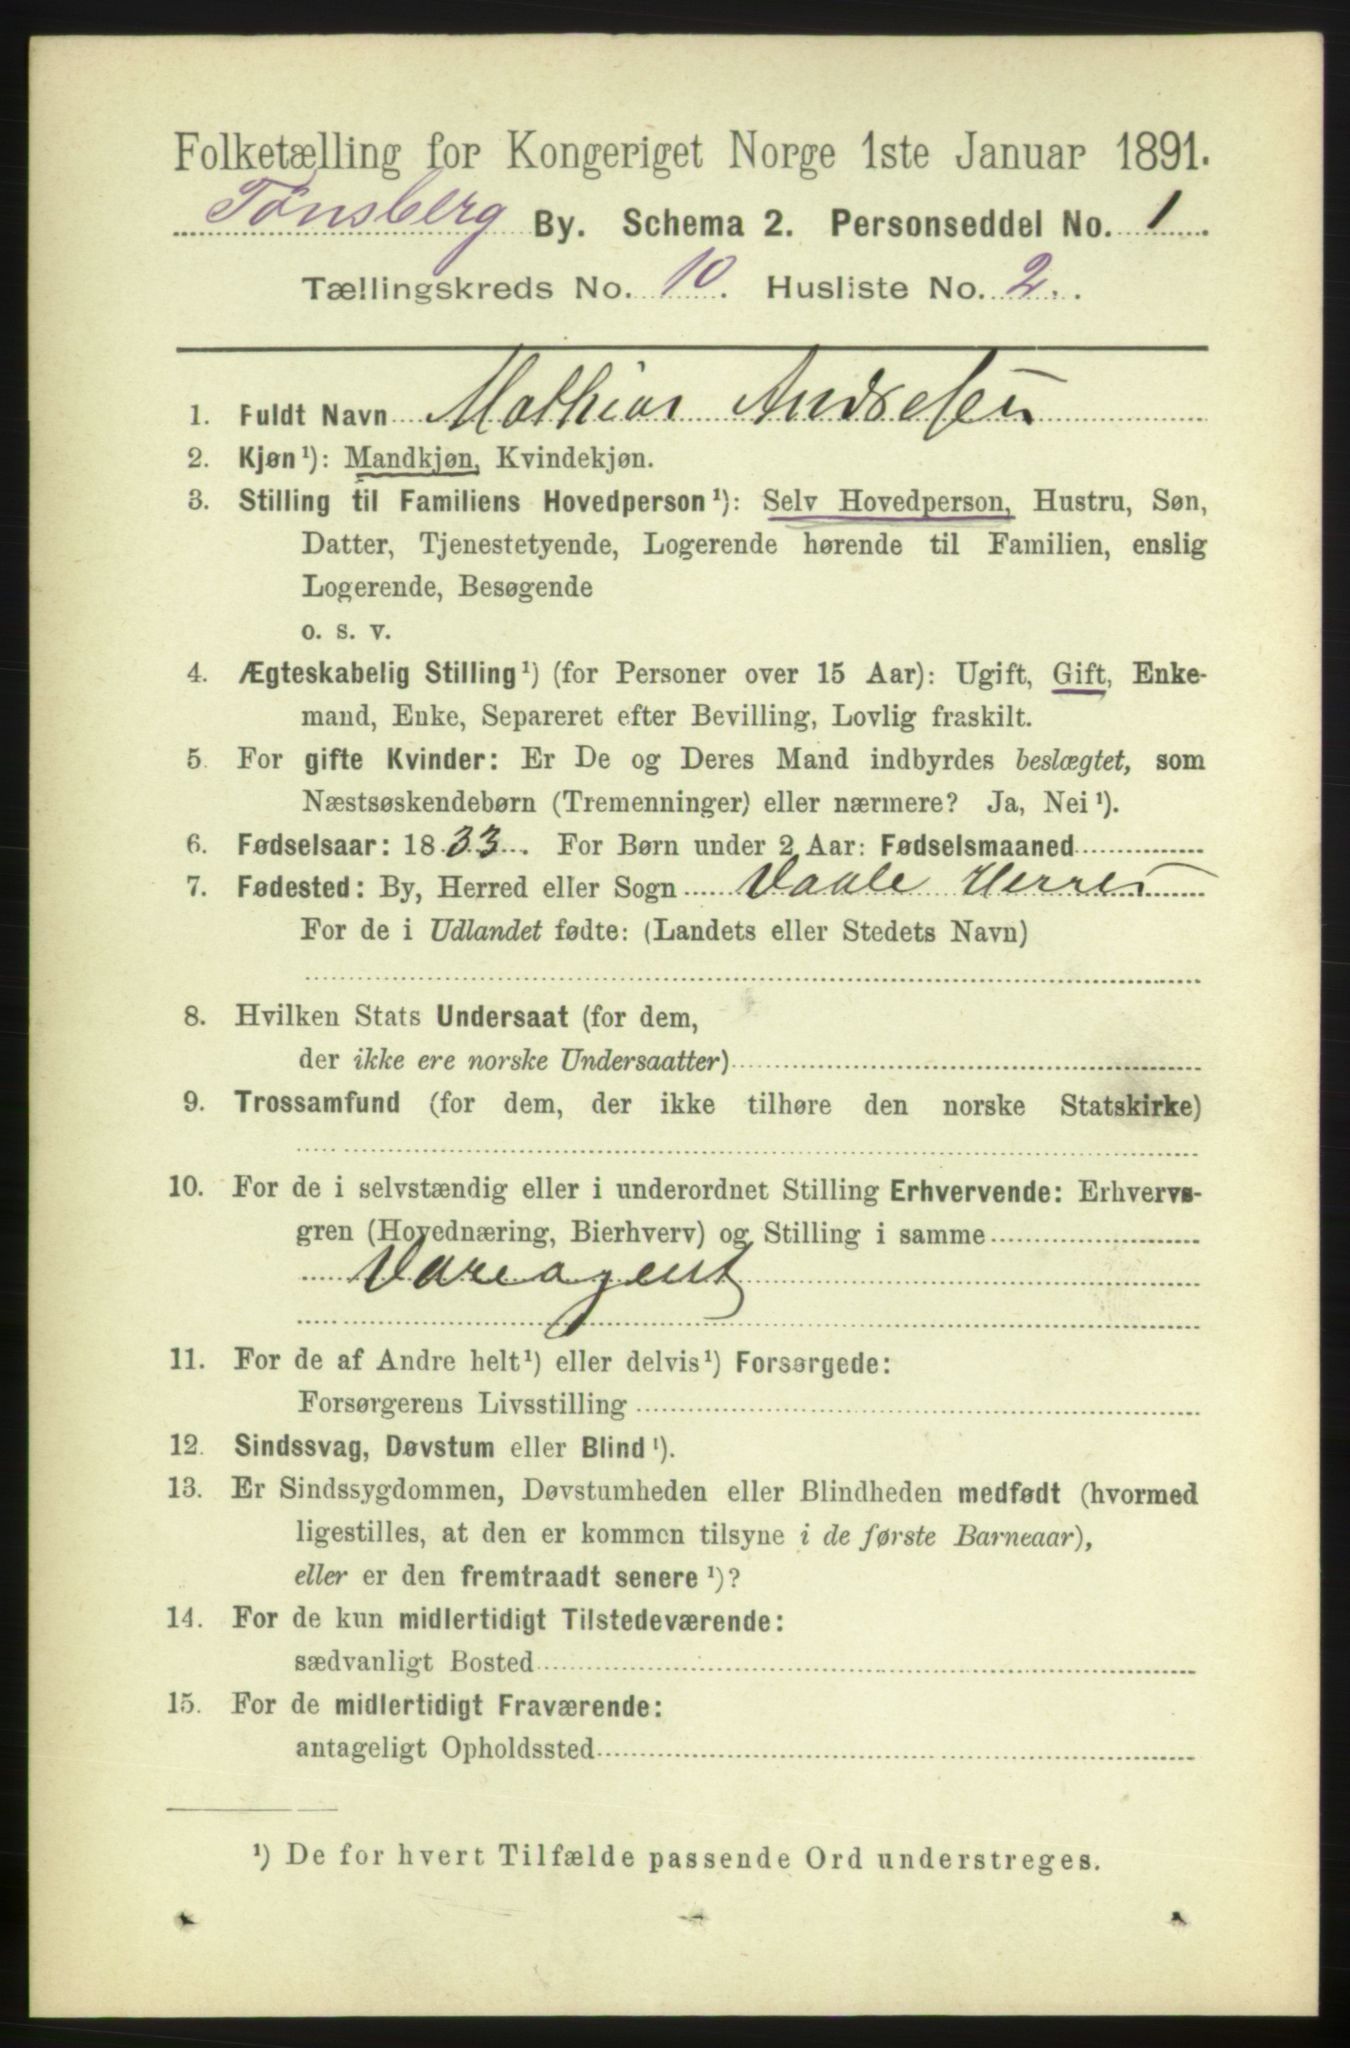 Folketælling for Kongeriget Norge 1ste Januar 1891.
Tønsberg By. Schema 2. Personseddel No. 1.
Tællingskreds No. 10. Husliste No. 2.
1. Fuldt Navn Mathias Andresen
2. Kjøn¹): Mandkjøn, Kvindekjøn.
3. Stilling til Familiens Hovedperson¹): Selv Hovedperson, Hustru, Søn,
Datter, Tjenestetyende, Logerende hørende til Familien, enslig
Logerende, Besøgende
o. s. v.
4. Ægteskabelig Stilling¹) (for Personer over 15 Aar): Ugift, Gift, Enke-
mand, Enke, Separeret efter Bevilling, Lovlig fraskilt.
5. For gifte Kvinder: Er De og Deres Mand indbyrdes beslægtet, som
Næstsøskendebørn (Tremenninger) eller nærmere? Ja, Nei¹).
6. Fødselsaar: 1833. For Børn under 2 Aar: Fødselsmaaned
7. Fødested: By, Herred eller Sogn Vaale Herred
For de i Udlandet fødte: (Landets eller Stedets Navn)
8. Hvilken Stats Undersaat (for dem,
der ikke ere norske Undersaatter)
9. Trossamfund (for dem, der ikke tilhøre den norske Statskirke)
10. For de i selvstændig eller i underordnet Stilling Erhvervende: Erhvervs-
gren (Hovednæring, Bierhverv) og Stilling i samme
Vareagent
11. For de af Andre helt¹) eller delvis¹) Forsørgede:
Forsørgerens Livsstilling
12. Sindssvag, Døvstum eller Blind¹).
13. Er Sindssygdommen, Døvstumheden eller Blindheden medfødt (hvormed
ligestilles, at den er kommen tilsyne i de første Barneaar),
eller er den fremtraadt senere¹)?
14. For de kun midlertidigt Tilstedeværende:
sædvanligt Bosted
15. For de midlertidigt Fraværende:
antageligt Opholdssted
¹) De for hvert Tilfælde passende Ord understreges.